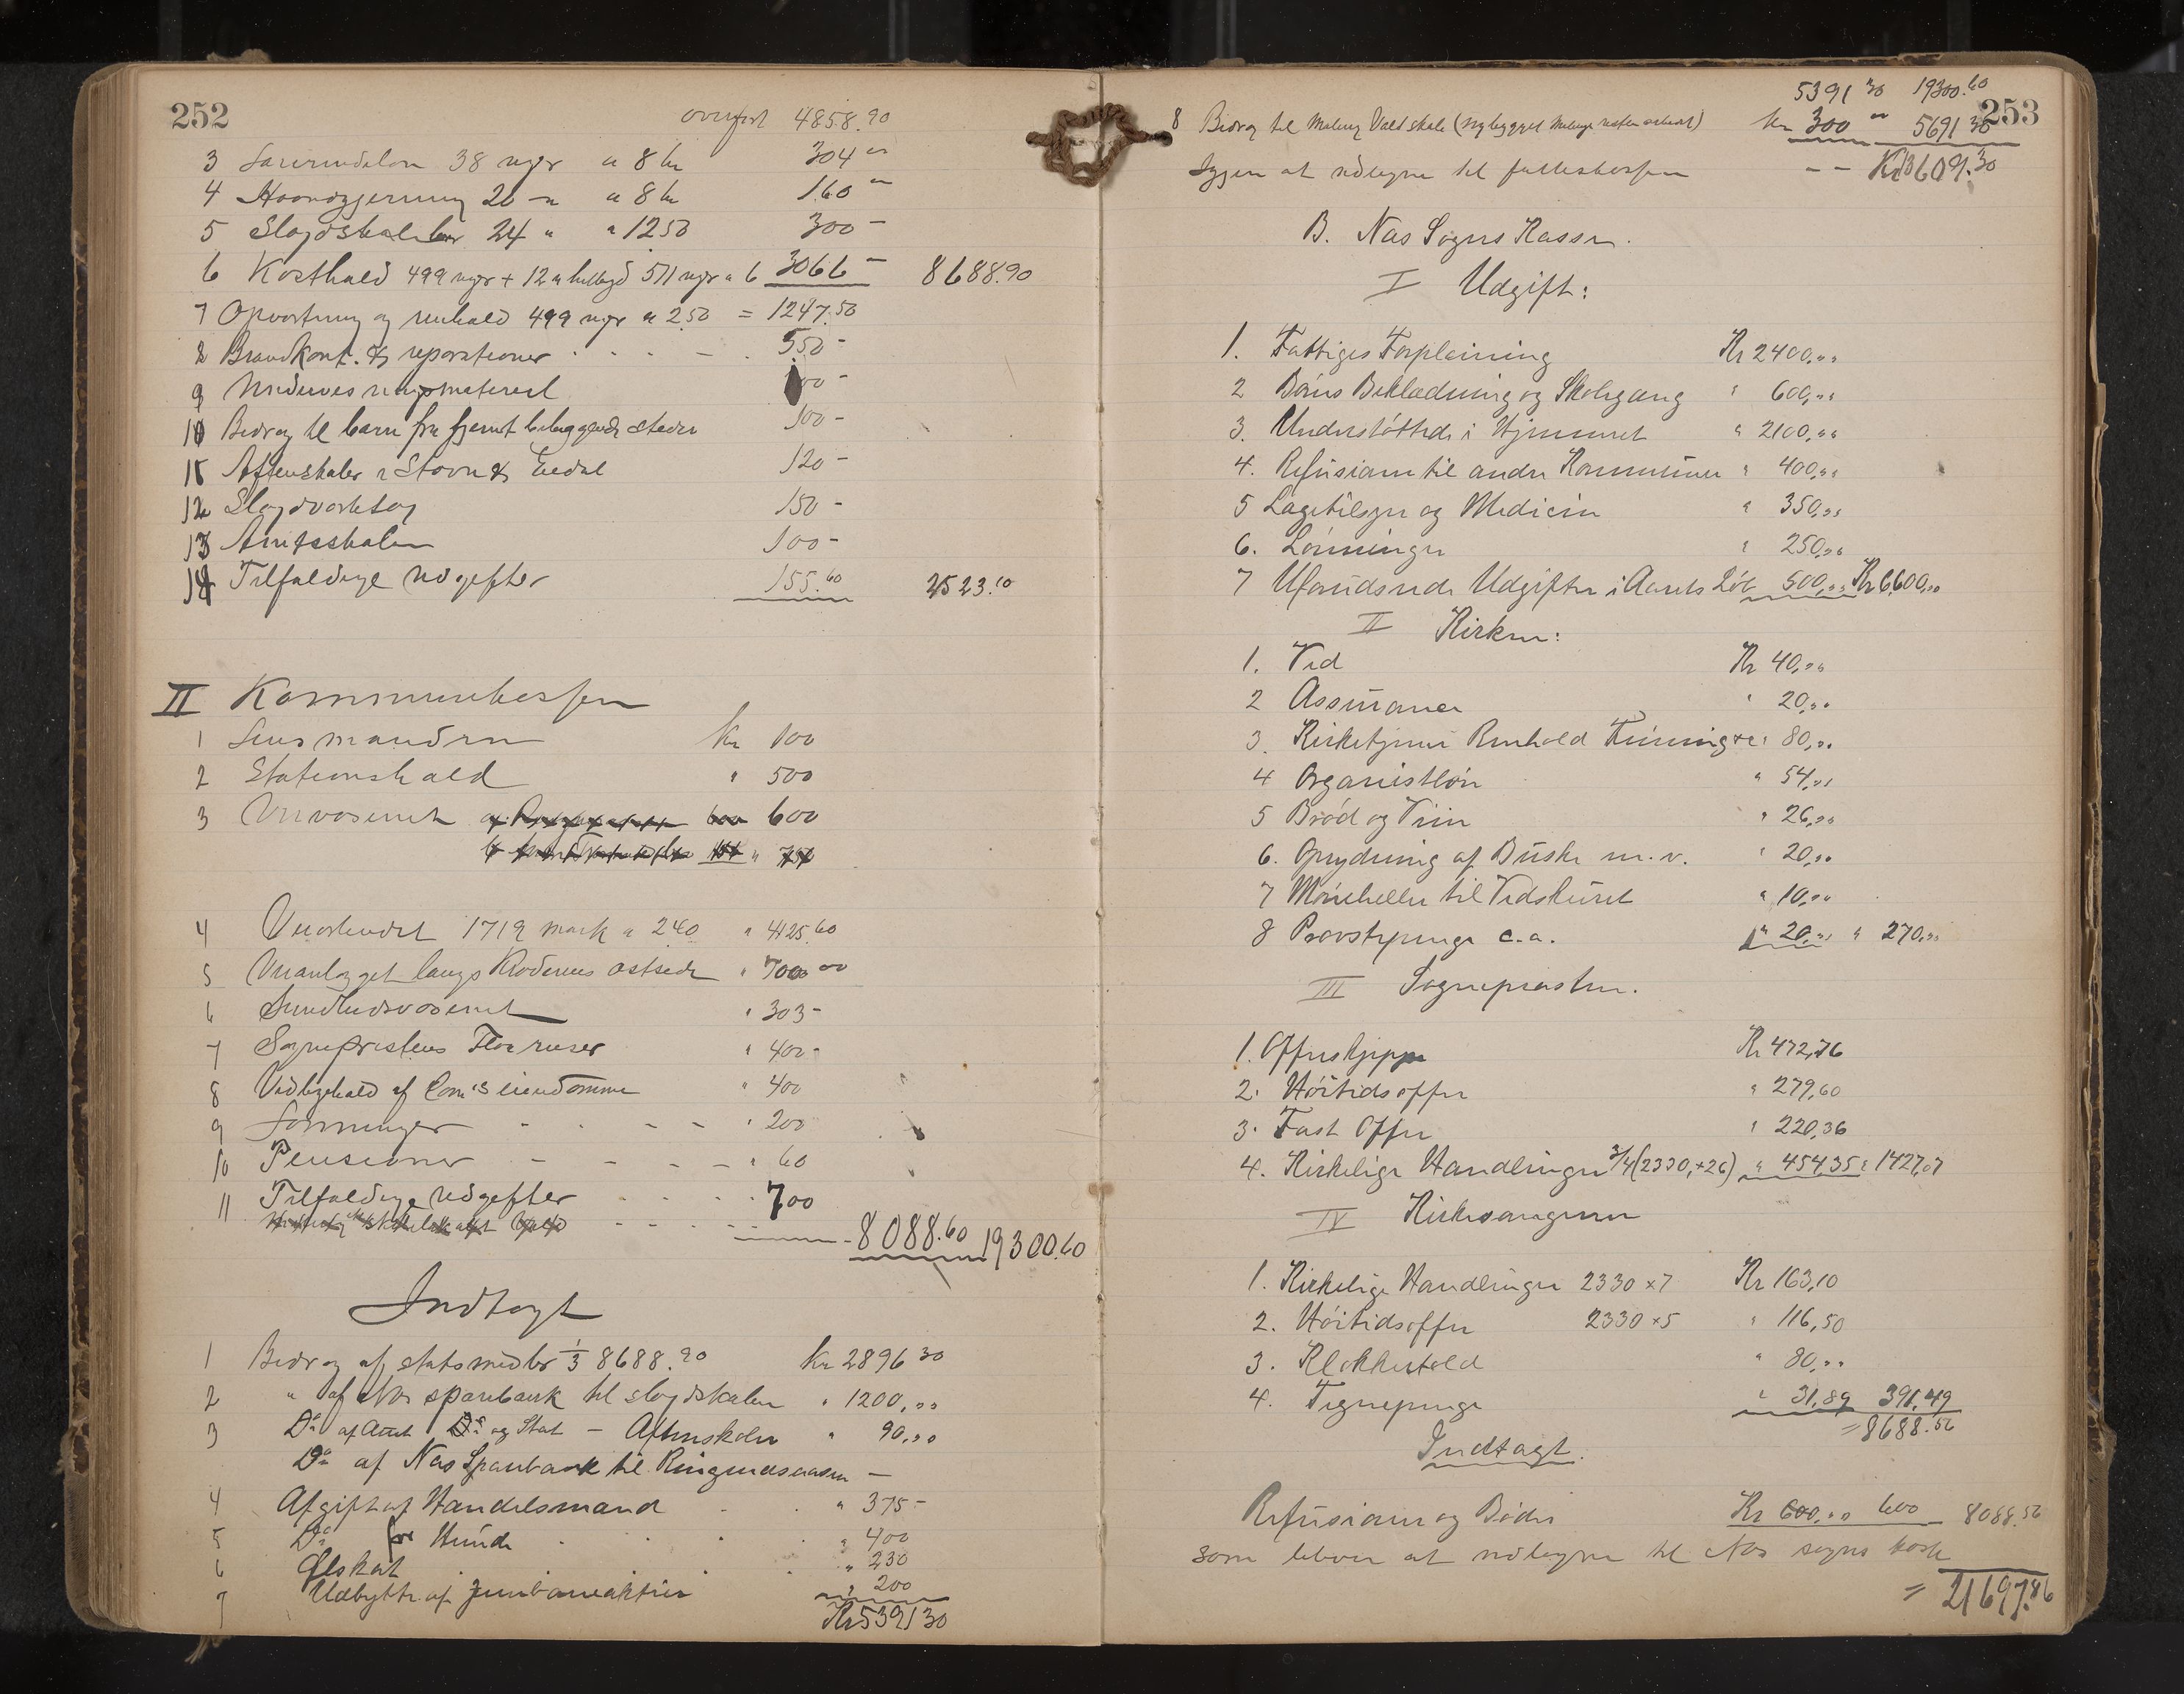 252
overført 4858.90
3 Lærerindeløn 38 uger a 8 kr 304 "
4 Haandgjerning 20 - " a 8 kr 160 "
5 Sløydskolelær 24 " " 1250 300 -
6 Kosthold 499 uger + 12 511 uger a 6 3066 - 8688.90
7 Opvartning og renhold 499 uger a 2.50 = 1247.50
8 Brandkont. & reparationer 550 -
9 Undervisningsmateriel 100 -
10 Bidrag til børn fra fjernt beliggende steder 100 -
11 Aftenskoler i Stavn & Eidal 120 -
12 Sløydværktøy 150 -
13 Amtsskolen 100 -
14 Tilfældige udgifter 155.60 2523.10
II Kommunekassen
1 Lensmanden Kr 100
2 Stationshold " 500
3 Veivæsenet 600
4 1719 mark a 240 " 4125.60
5 Veianlægget langs Krøderens østside " 700 00
6 Sundhedsvæsenet " 303 -
7 Sognepræstens " 400 -
8 Vedligehold af Com's eiendomme " 400
9 Lønninger " 200
10 Pensioner " 60
11 Tilfældige udgifter 700
8088.60 19300.60
Indtægt
1 Bidrag af statsmidler 1/3 8688.90 Kr 2896 30
2 " af Næs sparebank til sløjdskolen " 1200,""
3 Do af Amt Do og Stat - Aftenskoler " 90,""
Do af Næs Sparebank til Ringnesaasen -
4 Afgift af Handelsmænd " 375 -
5 Do for Hunde " 400
6 Ølskat " 230
7 Udbytte af Jernbaneaktier " 200
Kr 5391 30
253
5391 30 19300.60
8 Bidrag til Maling Vold skole (nybygget Malings Kr 300 " 5691 30
at udligne til felleskassen - - Kr 13609.30
B. Næs Sogns Kasse.
I Udgift:
1. Fattiges Forpleining Kr 2400,""
2 Børns Beklædning og Skolegang " 600,""
3. Understøttede i Hjemmet " 2100,""
4. Refusion til andre Kommuner " 400,""
5 Lægetilsyn og Medicin " 350,""
6. Lønninger " 250,""
7 Uforudseede Udgifter i Aarets Løb 500,"" Kr 6600,""
II Kirken:
1. Ved Kr 40,""
2 Assurance " 20,""
3. Kirketjener Renhold Fyrring " 80,""
4 Organistløn " 54,""
5 Brød og Viin " 26,""
6. Oprydning af Buske m.v. " 20,""
7 Møneheller til Vedskuret " 10,""
8 Provstepenge c.a. " 20,"" " 270,""
III Sognepræsten.
1. Offerskjeppe Kr 472,76
2. Høitidsoffer " 279,60
3. Fast Offer " 220,36
4. Kirkelige Handlinger 3/4(2330,+26) " 454,35 " 1427,07
IV Kirkesangeren
1. Kirkelige Handlinger 2330 × 7 Kr 163,10
2. Høitidsoffer 2330 × 5 " 116,50
3. Klokkertold " 80,""
4. Tegnepenge " 31,89 391,49
= 8688.56
Indtægt.
Refusioner og Bøder Kr 600,"" 600 8088.56
som bliver at udligne til Næs sogns kasse
= 21697.86